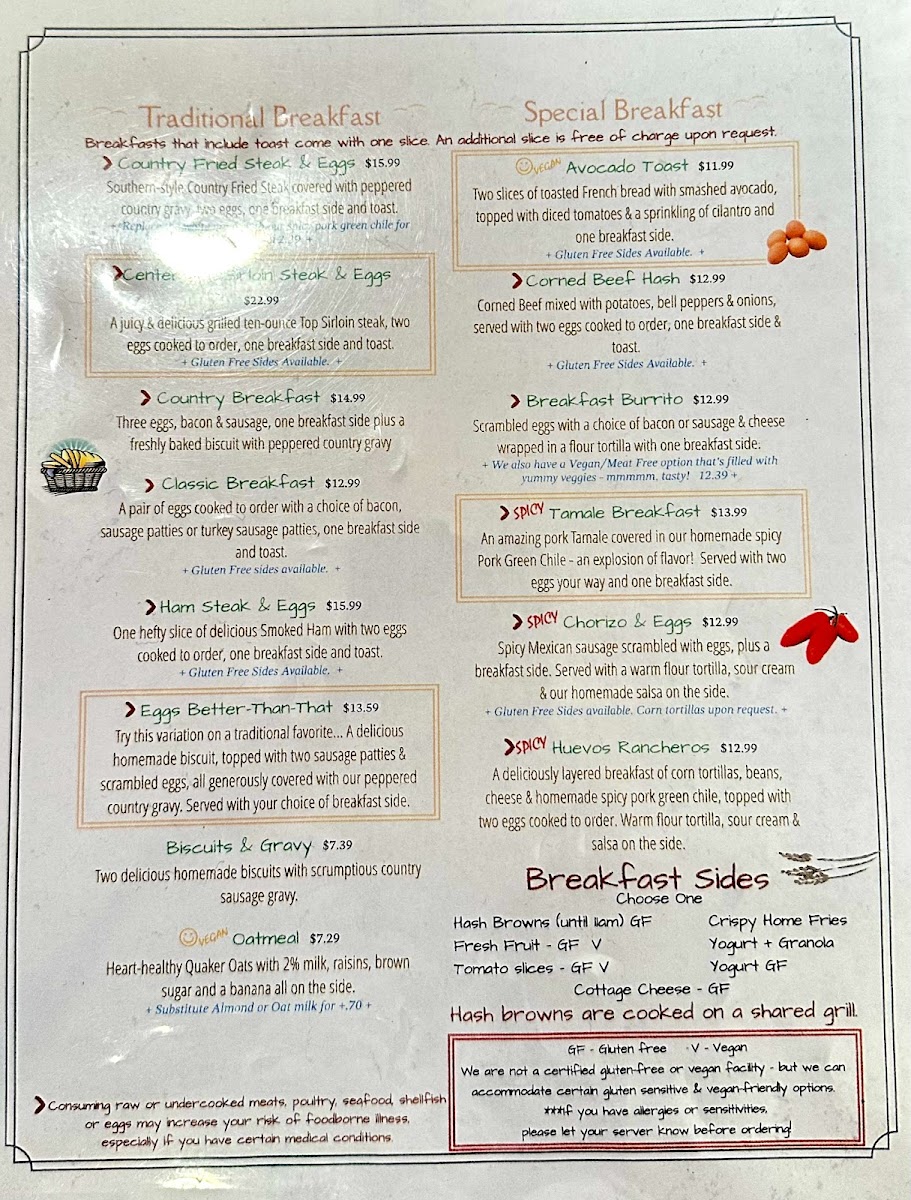 Traditional Breakfast
Special Breakfast
Breakfasts that include toast come with one slice. An additional slice is free of charge upon request.
Country Fried Steak & Eggs $15.99
Southern-style Country Fried Steak covered with peppered
country gravy, two eggs, one breakfast side and toast.
+ pork green chile for
Center Sirloin Steak & Eggs
$22.99
A juicy & delicious grilled ten-ounce Top Sirloin steak, two
eggs cooked to order, one breakfast side and toast.
+ Gluten Free Sides Available. +
Country Breakfast $14.99
Three eggs, bacon & sausage, one breakfast side plus a
freshly baked biscuit with peppered country gravy
Classic Breakfast $12.99
A pair of eggs cooked to order with a choice of bacon,
sausage patties or turkey sausage patties, one breakfast side
and toast.
+ Gluten Free sides available. +
Ham Steak & Eggs $15.99
One hefty slice of delicious Smoked Ham with two eggs
cooked to order, one breakfast side and toast.
+ Gluten Free Sides Available. +
Eggs Better-Than-That $13.59
Try this variation on a traditional favorite... A delicious
homemade biscuit, topped with two sausage patties &
scrambled eggs, all generously covered with our peppered
country gravy. Served with your choice of breakfast side.
Biscuits & Gravy $7.39
Two delicious homemade biscuits with scrumptious country
sausage gravy.
VEGAN Oatmeal $7.29
Heart-healthy Quaker Oats with 2% milk, raisins, brown
sugar and a banana all on the side.
+ Substitute Almond or Oat milk for +.70 +
Consuming raw or undercooked meats, poultry, seafood, shellfish
or eggs may increase your risk of foodborne illness,
especially if you have certain medical conditions.
VEGAN Avocado Toast $11.99
Two slices of toasted French bread with smashed avocado,
topped with diced tomatoes & a sprinkling of cilantro and
one breakfast side.
+ Gluten Free Sides Available. +
Corned Beef Hash $12.99
Corned Beef mixed with potatoes, bell peppers & onions,
served with two eggs cooked to order, one breakfast side &
toast.
+ Gluten Free Sides Available. +
Breakfast Burrito $12.99
Scrambled eggs with a choice of bacon or sausage & cheese
wrapped in a flour tortilla with one breakfast side.
+ We also have a Vegan/Meat Free option that's filled with
yummy veggies - mmmmm, tasty! 12.39 +
SPICY Tamale Breakfast $13.99
An amazing pork Tamale covered in our homemade spicy
Pork Green Chile - an explosion of flavor! Served with two
eggs your way and one breakfast side.
SPICY Chorizo & Eggs $12.99
Spicy Mexican sausage scrambled with eggs, plus a
breakfast side. Served with a warm flour tortilla, sour cream
& our homemade salsa on the side.
+ Gluten Free Sides available. Corn tortillas upon request. +
SPICY Huevos Rancheros $12.99
A deliciously layered breakfast of corn tortillas, beans,
cheese & homemade spicy pork green chile, topped with
two eggs cooked to order. Warm flour tortilla, sour cream &
salsa on the side.
Breakfast Sides
Choose One
Hash Browns (until 11am) GF Crispy Home Fries
Fresh Fruit - GF V Yogurt + Granola
Tomato slices - GF V Yogurt GF
Cottage Cheese - GF
Hash browns are cooked on a shared grill.
GF - Gluten free V - Vegan
We are not a certified gluten-free or vegan facility - but we can
accommodate certain gluten sensitive & vegan-friendly options.
***If you have allergies or sensitivities,
please let your server know before ordering!